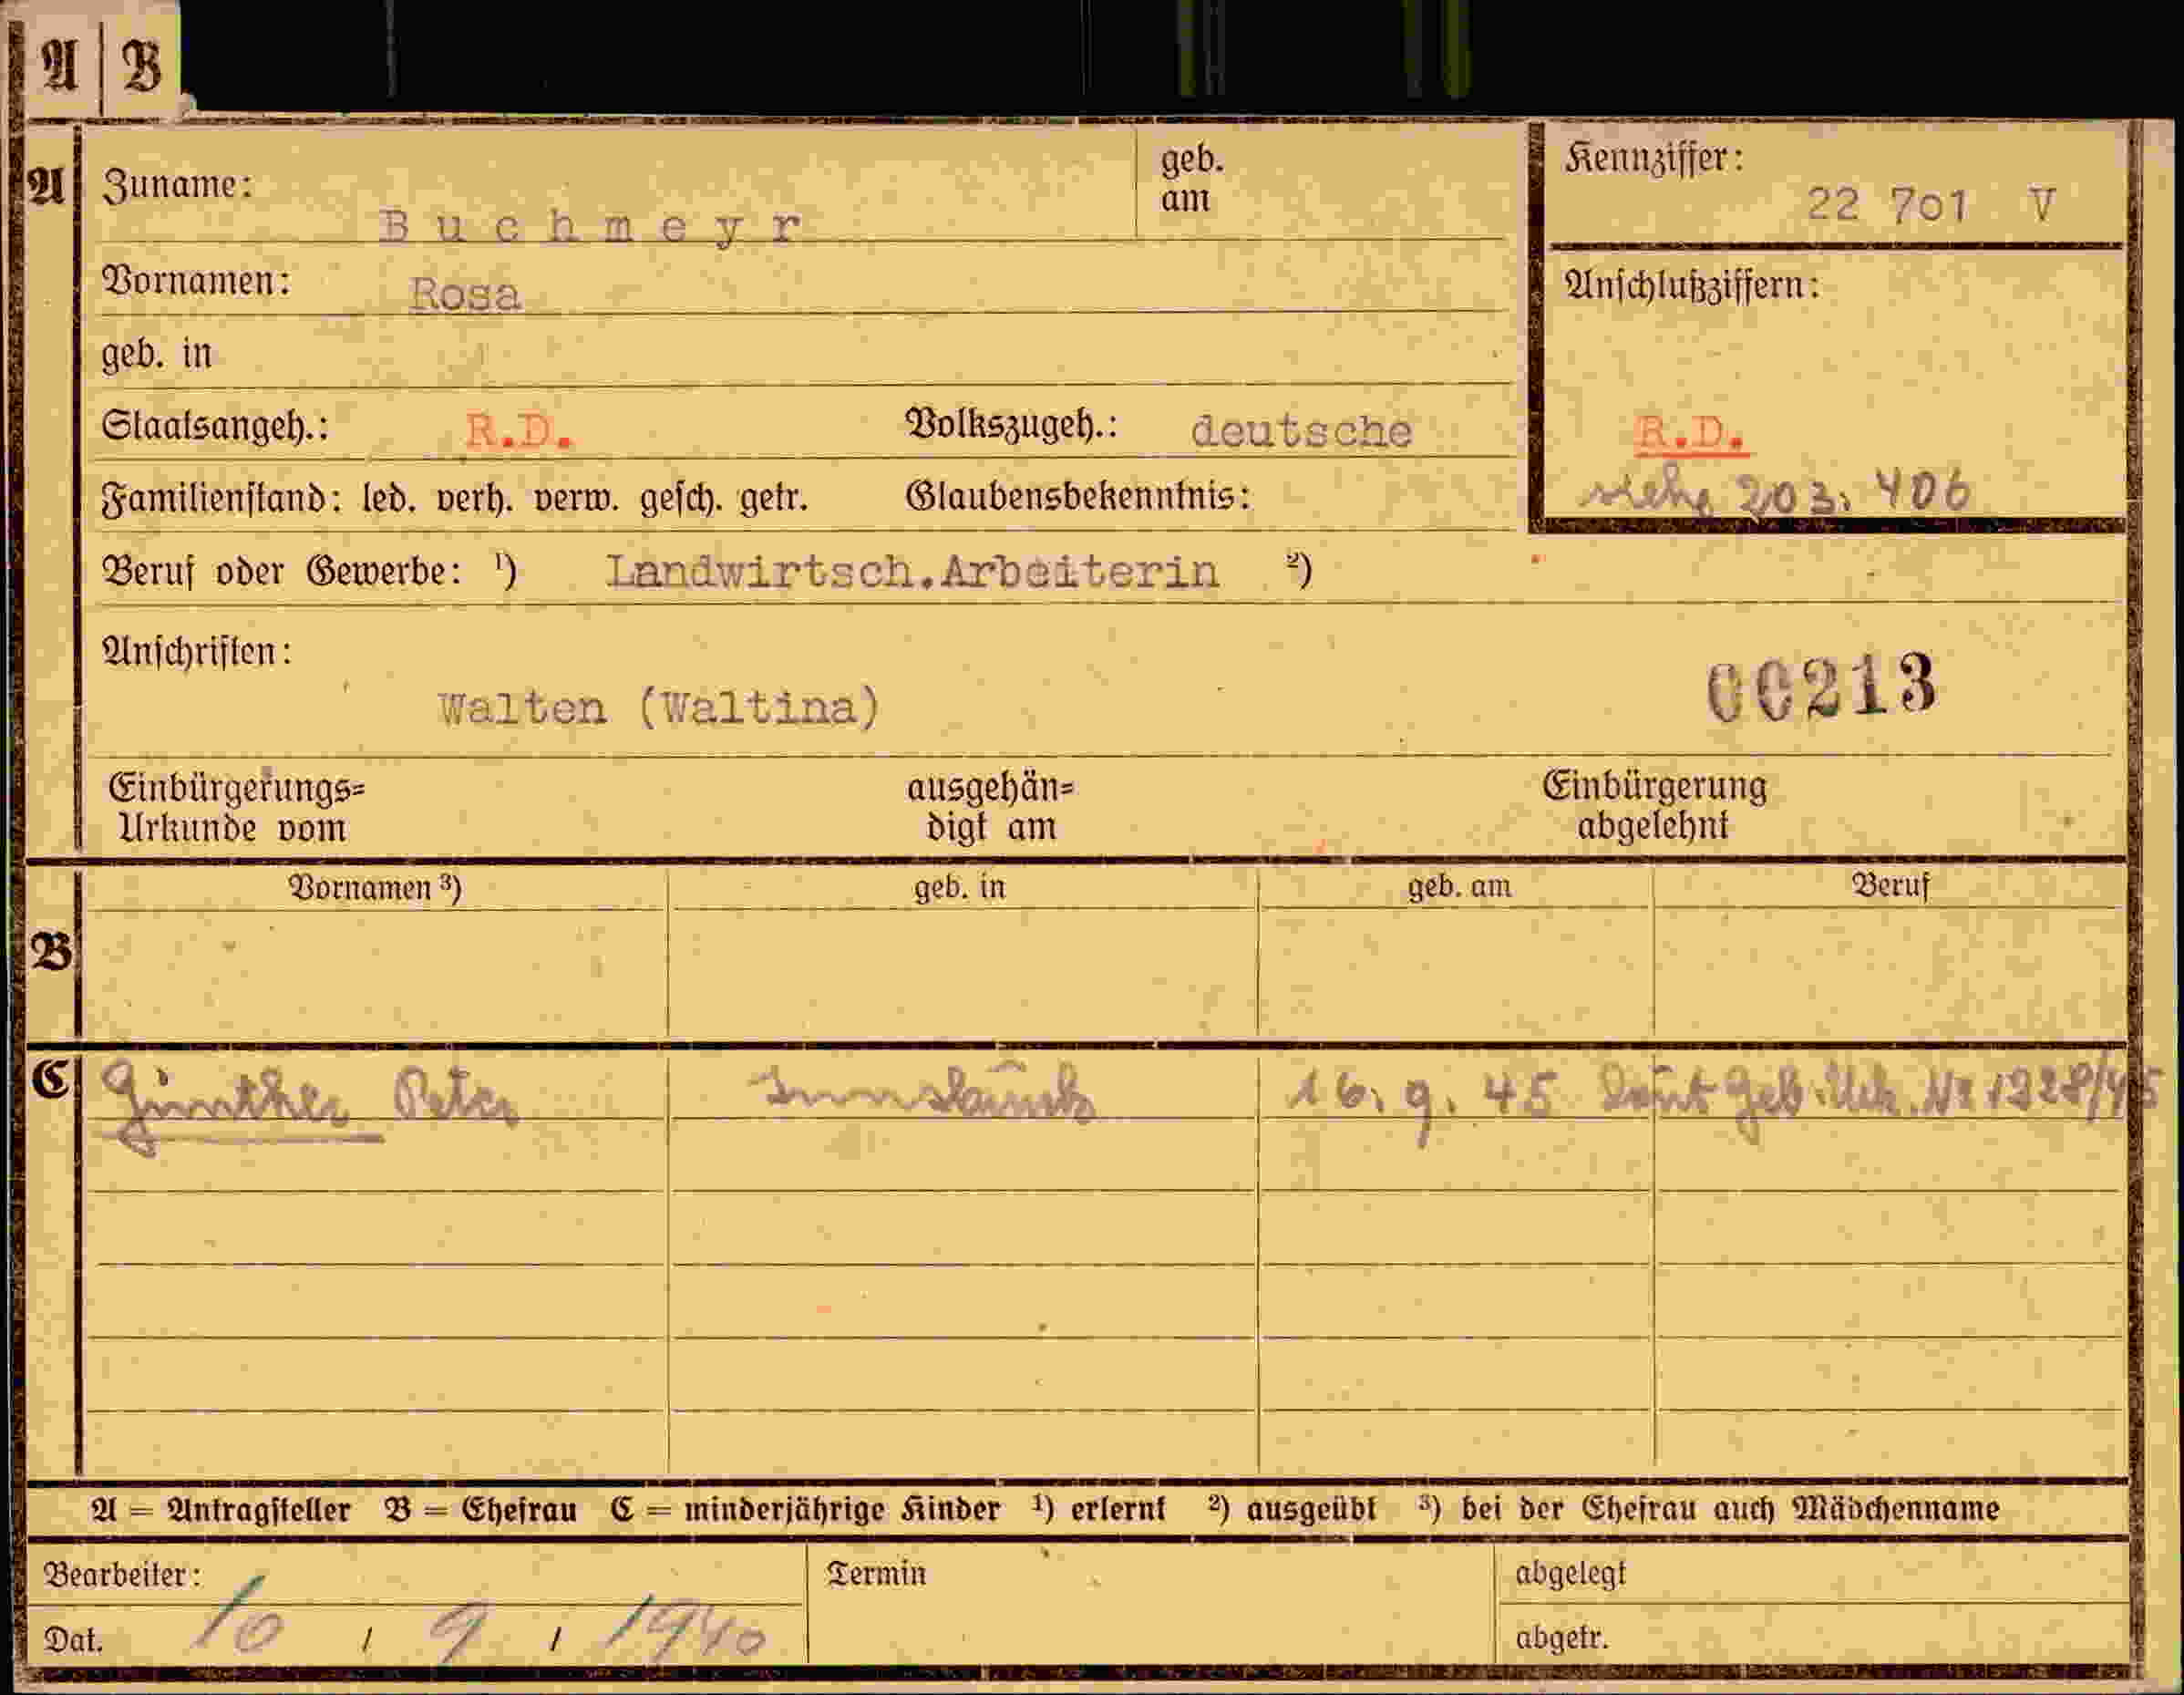 A | B
A Zuname: Buchmeyr geb. am
Kennziffer: 22 701 V
Vornamen: Rosa
Anschlußziffern:
geb. in
Staatsangeh.: R.D. Volkszugeh.: deutsche
R.D.
Familienstand: led. verh. verw. gesch. getr. Glaubensbekenntnis:
siehe 203. 406
Beruf oder Gewerbe: ¹) Landwirtsch.Arbeiterin ²)
Anschriften:
Walten (Waltina)
00213
Einbürgerungs= Urkunde vom
ausgehän= digt am
Einbürgerung abgelehnt
Vornamen ³) geb. in geb. am Beruf
B
C Günther Peter Innsbruck 16. 9. 45 Laut Geb. Urk. Nr 1328/45
A = Antragsteller B = Ehefrau C = minderjährige Kinder ¹) erlernt ²) ausgeübt ³) bei der Ehefrau auch Mädchenname
Bearbeiter: Termin abgelegt
Dat. 10 / 9 / 1940 abgetr.